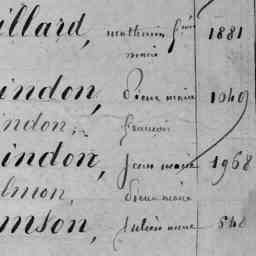 illard, mathurin 1881
marie
indon, Pierre marie 1049
indon, françois
indon, Jean marie 1968
lmon, Pierre marie
mson, Julien marie 548